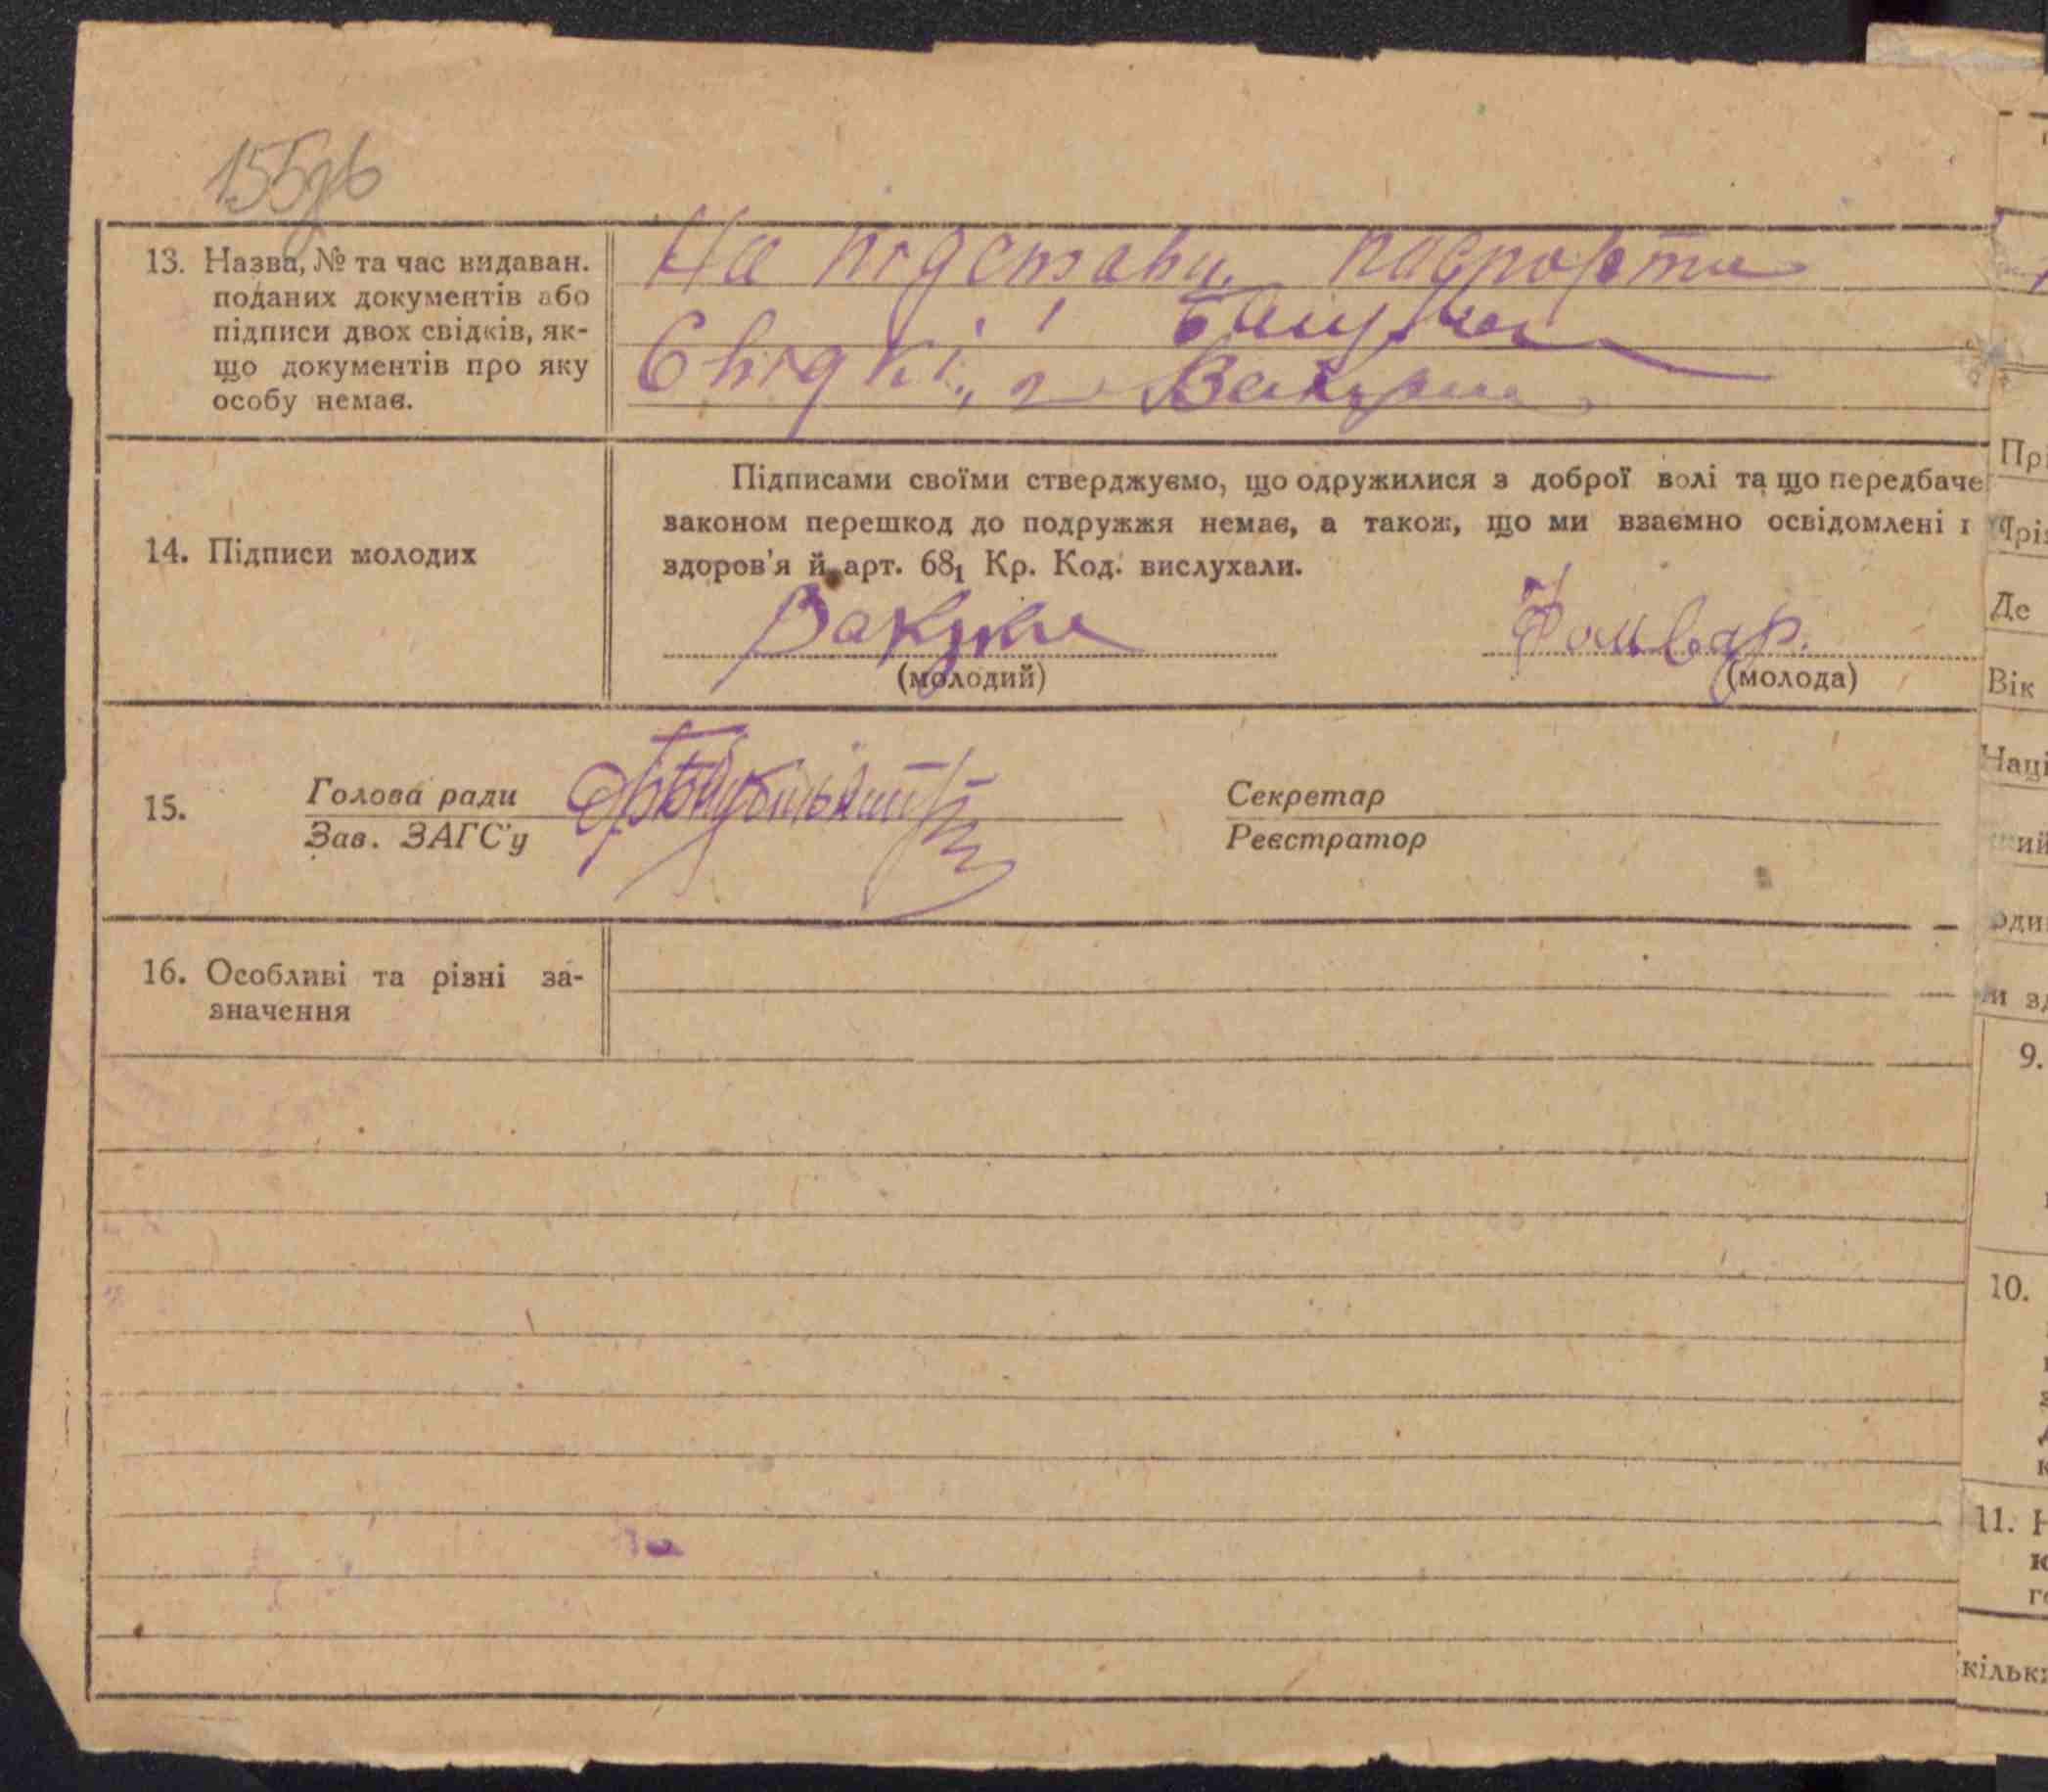 155зв
13. Назва, № та час видаван.
поданих документів або
підписи двох свідків, як-
що документів про яку
особу немає.
На підставі паспорта
Свідкі: 1
2
14. Підписи молодих
Підписами своїми стверджуємо, що одружилися з доброї волі та що передбаче
законом перешкод до подружжя немає, а також, що ми взаємно освідомлені г
здоров'я й арт. 68₁ Кр. Код. вислухали.
(молодий)
(молода)
15.
Голова ради
Зав. ЗАГС'у
Секретар
Реєстратор
16. Особливі та різні за-
значення
Прі
Де
Вік
Наці
9.
10.
11.